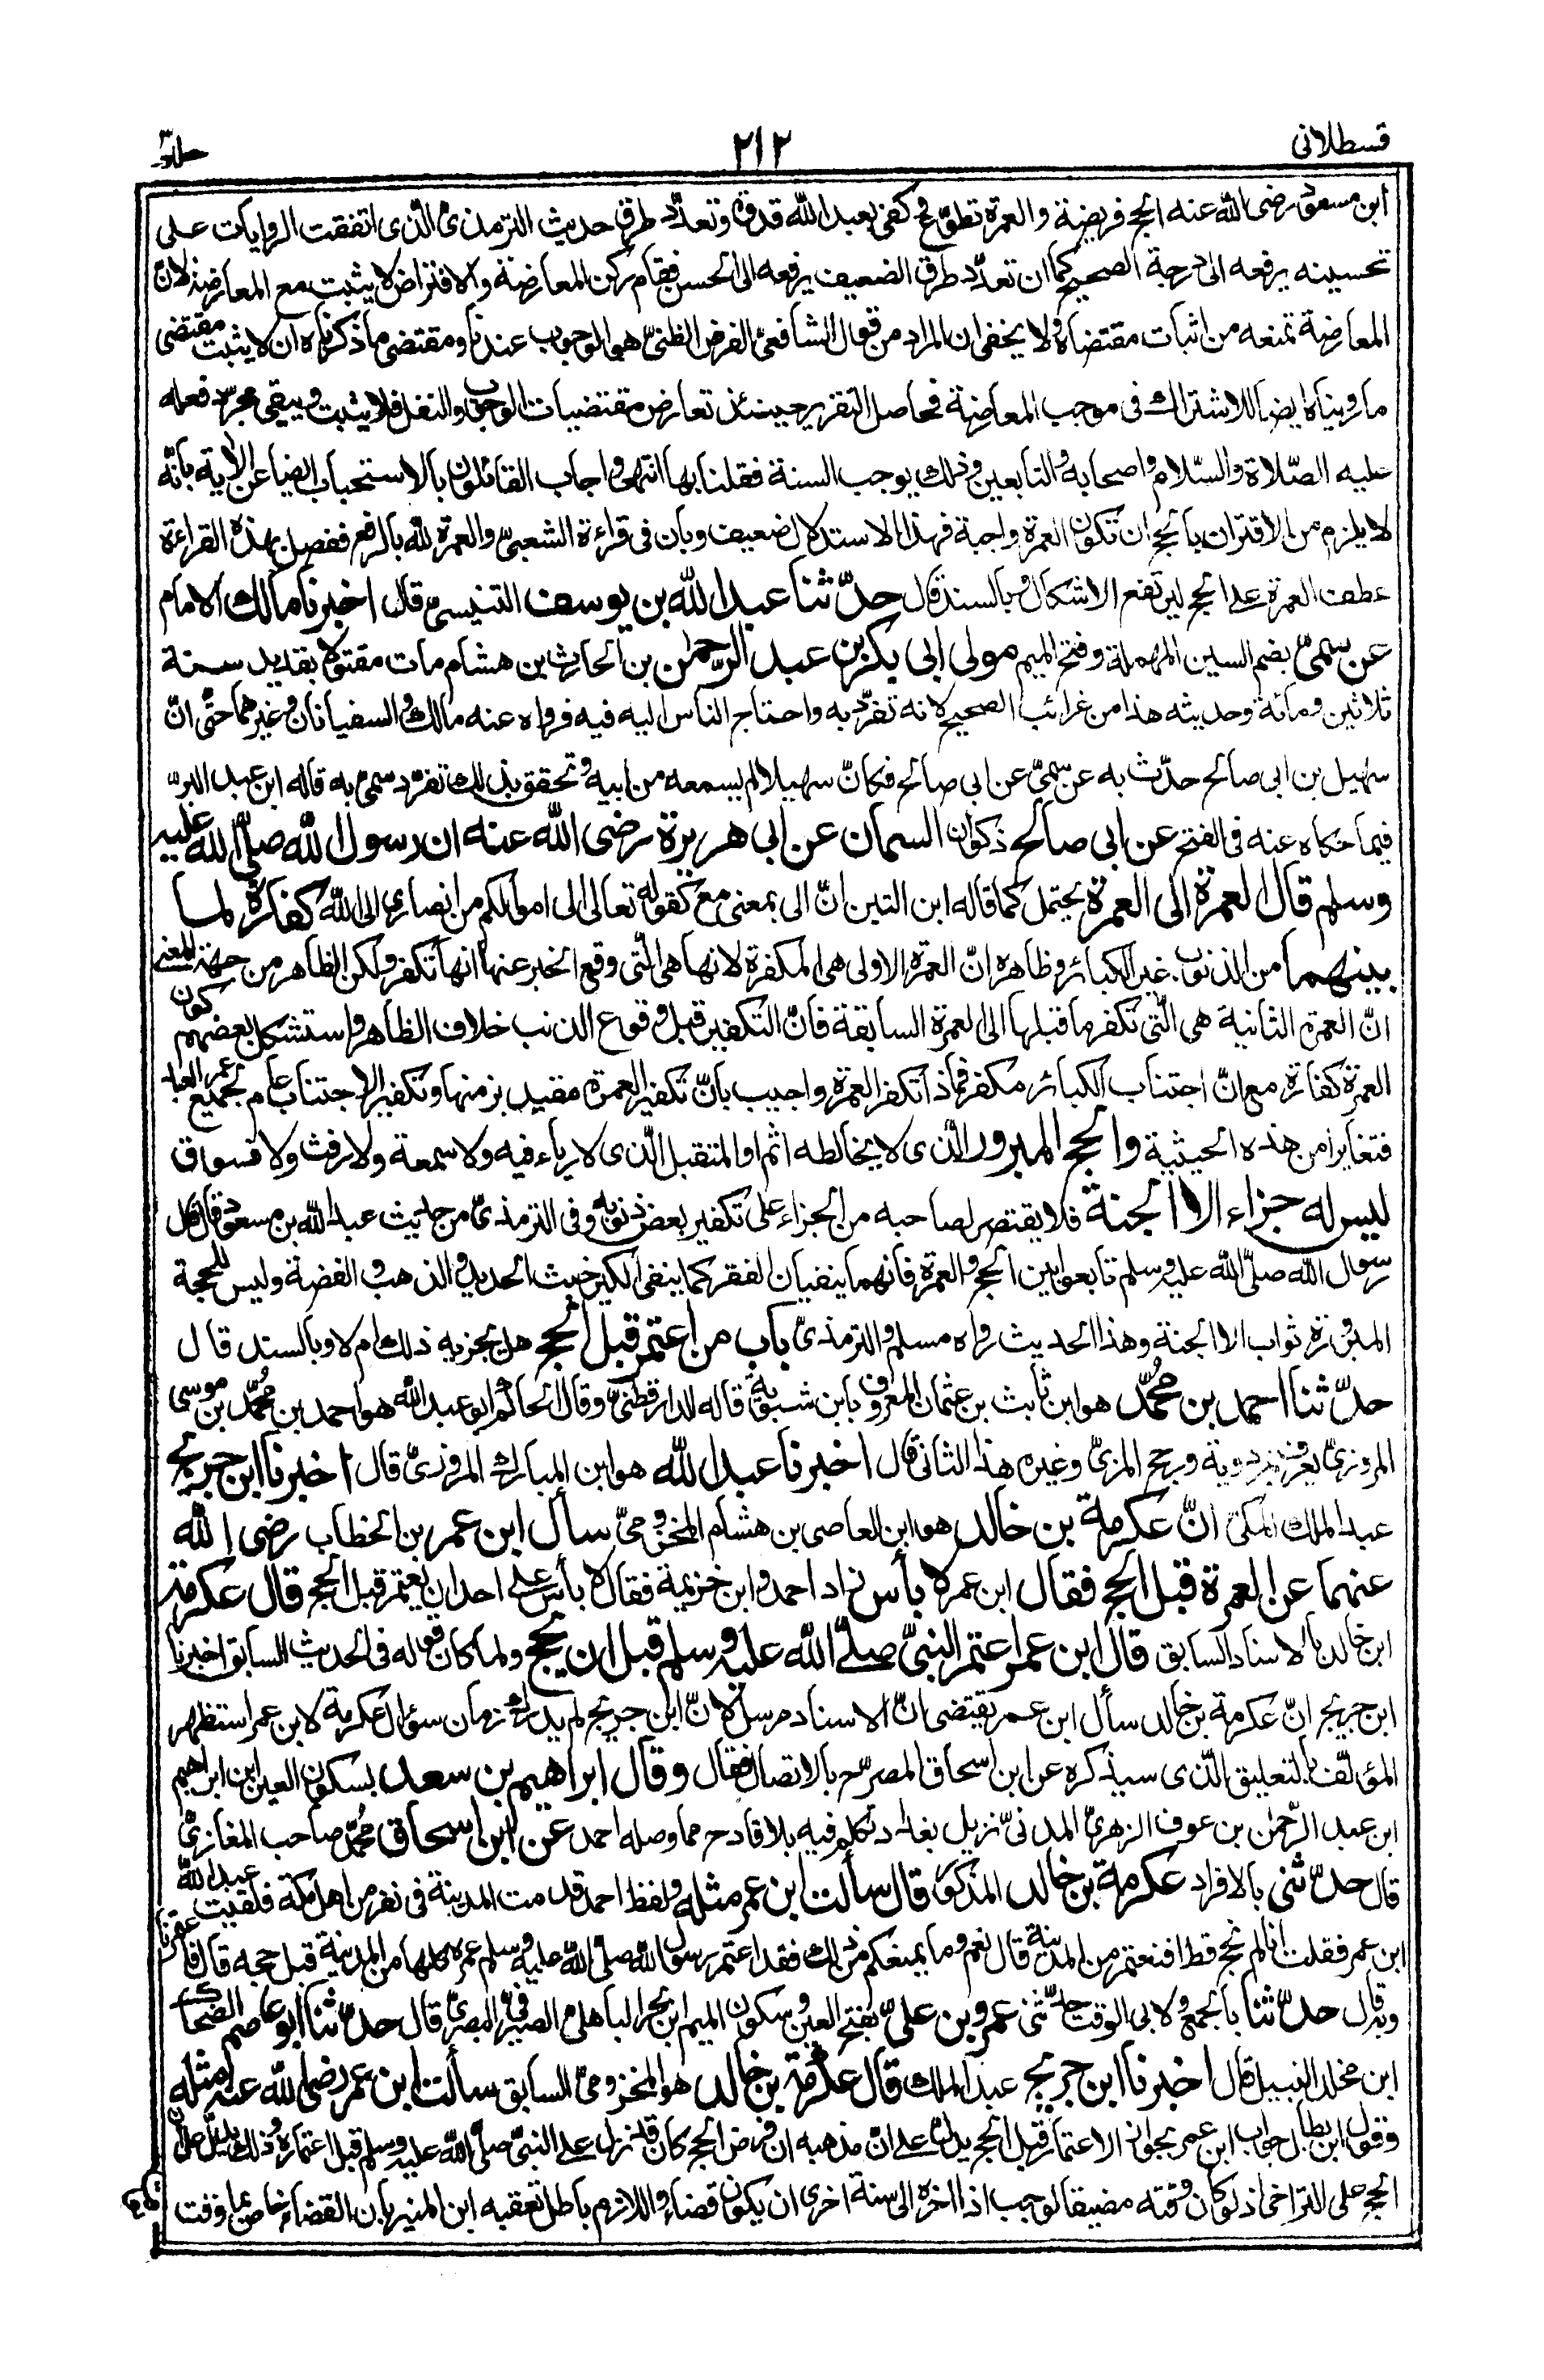 قسطلانى
٢١٢
جلد٣
ابن مسعود رضى الله عنه الحج فريضة والعمرة تطوّع وكفى بعبد الله قدوة وتعدّد طرق حديث الترمذىّ الّذى اتفقت الروايات على
تحسينه يرفعه الى درجة الصحيح كما ان تعدّد طرق الضعيف يرفعه الى الحسن فقام ركن المعارضة والافتراض لا يثبت مع المعارضة لانّ
المعارضة تمنعه من اثبات مقتضاه ولا يخفى ان المراد من قول الشافعىّ الفرض الظنىّ هو الوجوب عندنا ومقتضى ما ذكرناه ان لا يثبت مقتضى
ما رويناه ايضا للاشتراك فى موجب المعارضة فحاصل التقرير حينئذ تعارض مقتضيات الوجوب والنفل فلا يثبت ويبقى مجرّد فعله
عليه الصّلاة والسّلام واصحابه والتابعين وذلك يوجب السنة فقلنا بها انتهى واجاب القائلون بالاستحباب ايضا عن الآية بانّه
لا يلزم من الاقتران بالحج ان تكون العمرة واجبة فهذا الاستدلال ضعيف وبان فى قراءة الشعبىّ والعمرة لله بالرفع ففصل بهذه القراءة
عطف العمرة على الحج ليرتفع الاشكال وبالسند قال حدّثنا عبد الله بن يوسف التنيسىّ قال اخبرنا مالك الامام
عن سمىّ بضم السين المهملة وفتح الميم مولى ابى بكر بن عبد الرّحمن بن الحارث بن هشام مات مقتولا بقديد سنة
ثلاثين ومائة وحديثه هذا من غرائب الصحيح لانه تفرّد به واحتاج الناس اليه فيه فرواه عنه مالك والسفيانان وغيرهما حتّى انّ
سهيل بن ابى صالح حدّث به عن سمىّ عن ابى صالح فكانّ سهيلا لم يسمعه من ابيه وتحقق بذلك تفرّد سمىّ به قاله ابن عبد البرّ
فيما حكاه عنه فى الفتح عن ابى صالح ذكوان السمان عن ابى هريرة رضى الله عنه ان رسول الله صلّى الله عليه
وسلم قال العمرة الى العمرة يحتمل كما قاله ابن التين انّ الى بمعنى مع كقوله تعالى الى اموالكم من انصارى الى الله كفارة لما
بينهما من الذنوب غير الكبائر وظاهره انّ العمرة الاولى هى المكفرة لانها هى الّتى وقع الخبر عنها انها تكفر ولكن الظاهر من جهة المعنى
انّ العمرة الثانية هى الّتى تكفر ما قبلها الى العمرة السابقة فانّ التكفير قبل وقوع الذنب خلاف الظاهر واستشكل بعضهم كون
العمرة كفارة مع انّ اجتناب الكبائر مكفر فماذا تكفر العمرة واجيب بانّ تكفير العمرة مقيد بزمنها وتكفير الاجتناب عام لجميع عمر العبد
فتغايرا من هذه الحيثية والحج المبرور الّذى لا يخالطه اثم او المتقبل الّذى لا رياء فيه ولا سمعة ولا رفث ولا فسوق
ليس له جزاء الا الجنة فلا يقتصر لصاحبه من الجزاء على تكفير بعض ذنوبه وفى الترمذىّ من حديث عبد الله بن مسعود قال قال
رسول الله صلّى الله عليه وسلم تابعوا بين الحج والعمرة فانهما ينفيان الفقر كما ينفى الكير خبث الحديد والذهب والفضة وليس للحجة
المبرورة ثواب الا الجنة وهذا الحديث رواه مسلم والترمذىّ باب من اعتمر قبل الحج هل يجزيه ذلك ام لا وبالسند قال
حدّثنا احمد بن محمّد هو ابن ثابت بن عثمان المعروف بابن شبويه قاله الدارقطنىّ وقال الحاكم ابو عبد الله هو احمد بن محمّد بن موسى
المروزىّ يعرف بمردوية ورجح المزىّ وغيره هذا الثانى قال اخبرنا عبد الله هو ابن المبارك المروزىّ قال اخبرنا ابن جريج
عبد الملك المكىّ انّ عكرمة بن خالد هو ابن العاصى بن هشام المخزومىّ سأل ابن عمر بن الخطاب رضى الله
عنهما عن العمرة قبل الحج فقال ابن عمر لا بأس زاد احمد وابن خزيمة فقال لا بأس على احد ان يعتمر قبل الحج قال عكرمة
ابن خالد بالاسناد السابق قال ابن عمر اعتمر النبىّ صلّى الله عليه وسلم قبل ان يحج ولما كان قوله فى الحديث السابق اخبرنا
ابن جريج انّ عكرمة بن خالد سأل ابن عمر يقتضى انّ الاسناد مرسل لانّ ابن جريج لم يدرك زمان سؤال عكرمة لابن عمر استظهر
المؤلّف بالتعليق الّذى سيذكره عن ابن اسحاق المصرّح بالاتصال فقال وقال ابراهيم بن سعد بسكون العين ابن ابراهيم
ابن عبد الرّحمن بن عوف الزهرىّ المدنىّ نزيل بغداد تكلم فيه بلا قادح مما وصله احمد عن ابن اسحاق محمّد صاحب المغازى
قال حدّثنى بالافراد عكرمة بن خالد المذكور قال سألت ابن عمر مثله ولفظ احمد قدمت المدينة فى نفر من اهل مكة فلقيت عبد الله
ابن عمر فقلت انا لم نحج قط افنعتمر من المدينة قال نعم وما يمنعكم من ذلك فقد اعتمر رسول الله صلّى الله عليه وسلم عمره كلها من المدينة قبل حجه قال فاعتمرنا
وبه قال حدّثنا بالجمع ولابى الوقت حدّثنى عمرو بن علىّ بفتح العين وسكون الميم ابن بحر الباهلىّ الصيرفىّ البصرىّ قال حدّثنا ابو عاصم الضحاك
ابن مخلد النبيل قال اخبرنا ابن جريج عبد الملك قال عكرمة بن خالد هو المخزومىّ السابق سألت ابن عمر رضى الله عنه مثله
وقول ابن بطال جواب ابن عمر بجواز الاعتمار قبل الحج يدل على انّ مذهبه ان فرض الحج كان قد نزل على النبىّ صلّى الله عليه وسلم قبل اعتماره وذلك يدلّ على انّ
الحج على التراخى اذ لو كان وقته مضيقا لوجب اذا اخره الى سنة اخرى ان يكون قضاء واللازم باطل تعقبه ابن المنير بان القضاء خاص بما وقت